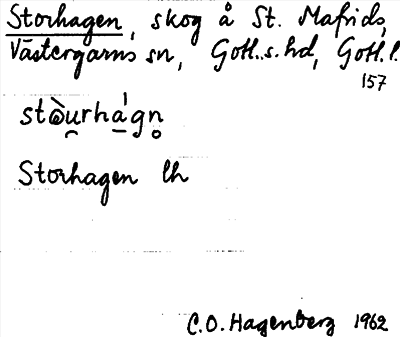 Storhagen, skog å St. Mafrids,
Västergarns sn, Gotl. s. hd, Gotl. l.
157
stɷ̀u̯rhá̱gn̥
Storhagen lh
C.O. Hagenberg 1962